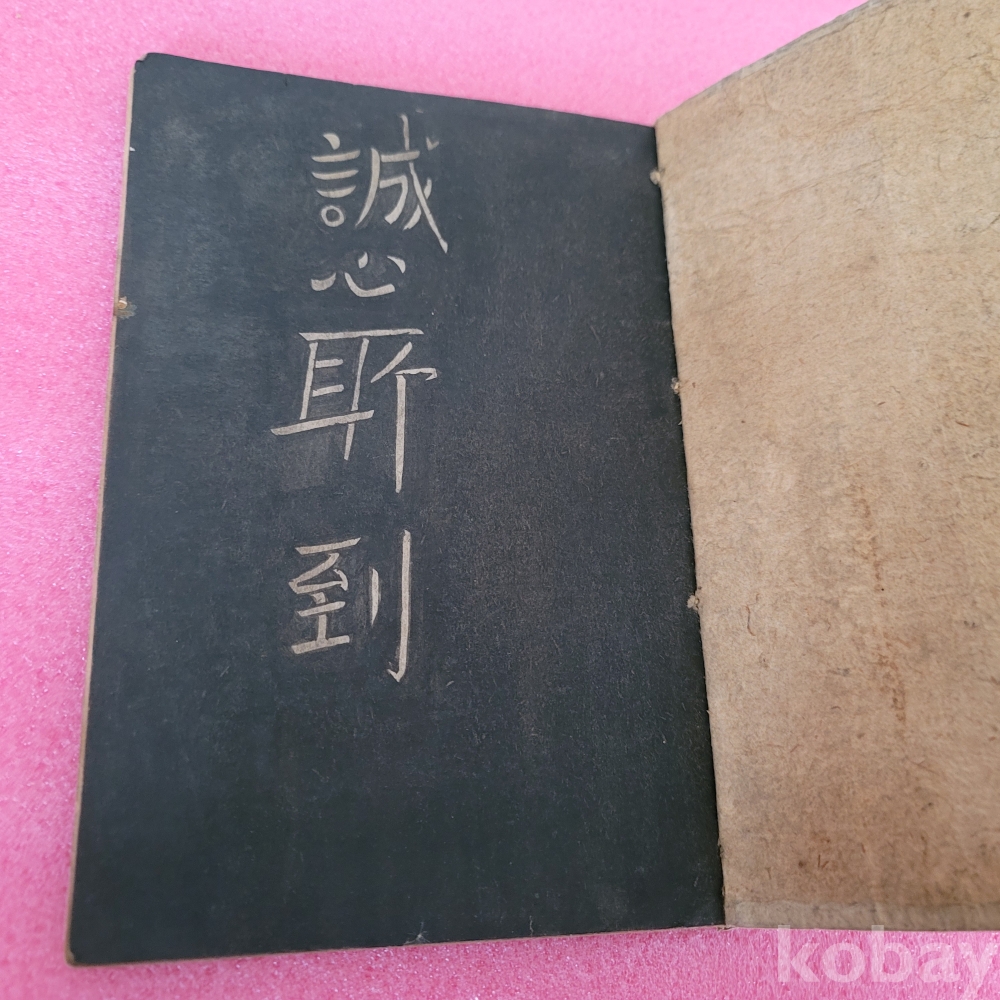 誠心所到
kobay